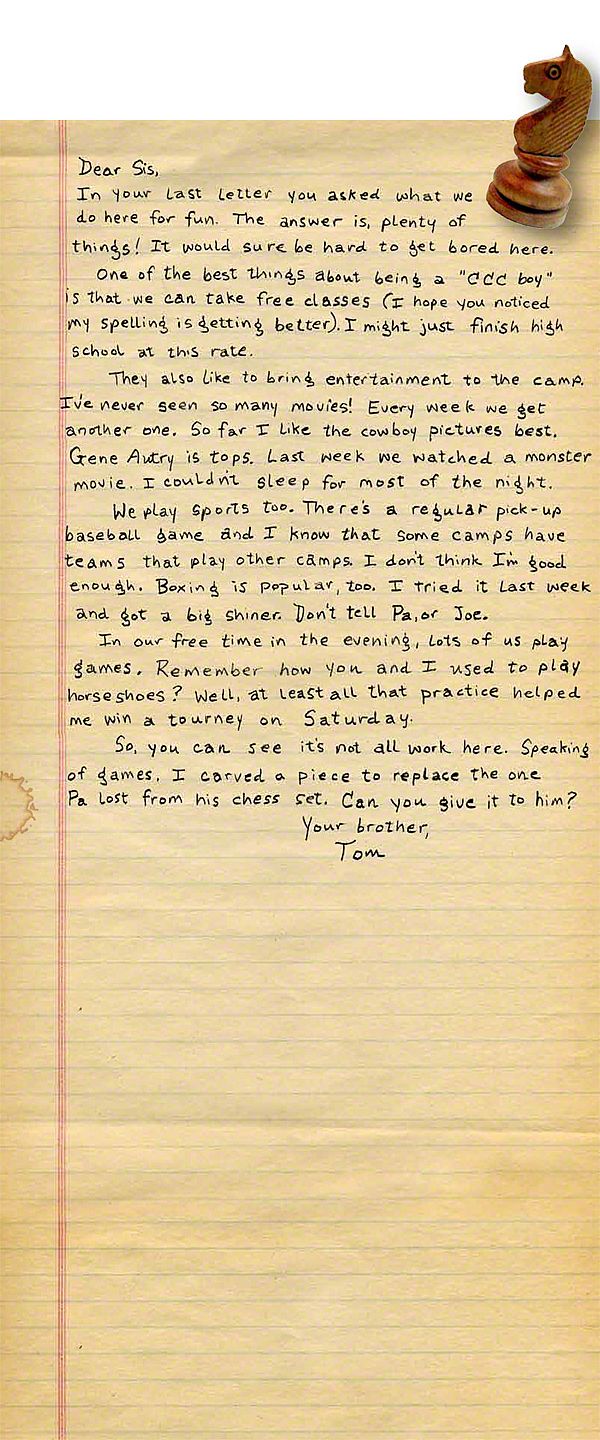 Dear Sis,
In your last letter you asked what we
do here for fun. The answer is, plenty of
things! It would sure be hard to get bored here.
One of the best things about being a "CCC boy"
is that we can take free classes (I hope you noticed
my spelling is getting better). I might just finish high
school at this rate.
They also like to bring entertainment to the camp.
I've never seen so many movies! Every week we get
another one. So far I like the cowboy pictures best.
Gene Autry is tops. Last week we watched a monster
movie. I couldn't sleep for most of the night.
We play sports too. There's a regular pick-up
baseball game and I know that some camps have
teams that play other camps. I don't think I'm good
enough. Boxing is popular, too. I tried it last week
and got a big shiner. Don't tell Pa, or Joe.
In our free time in the evening, lots of us play
games. Remember how you and I used to play
horseshoes? Well, at least all that practice helped
me win a tourney on Saturday.
So, you can see it's not all work here. Speaking
of games, I carved a piece to replace the one
Pa lost from his chess set. Can you give it to him?
Your brother,
Tom